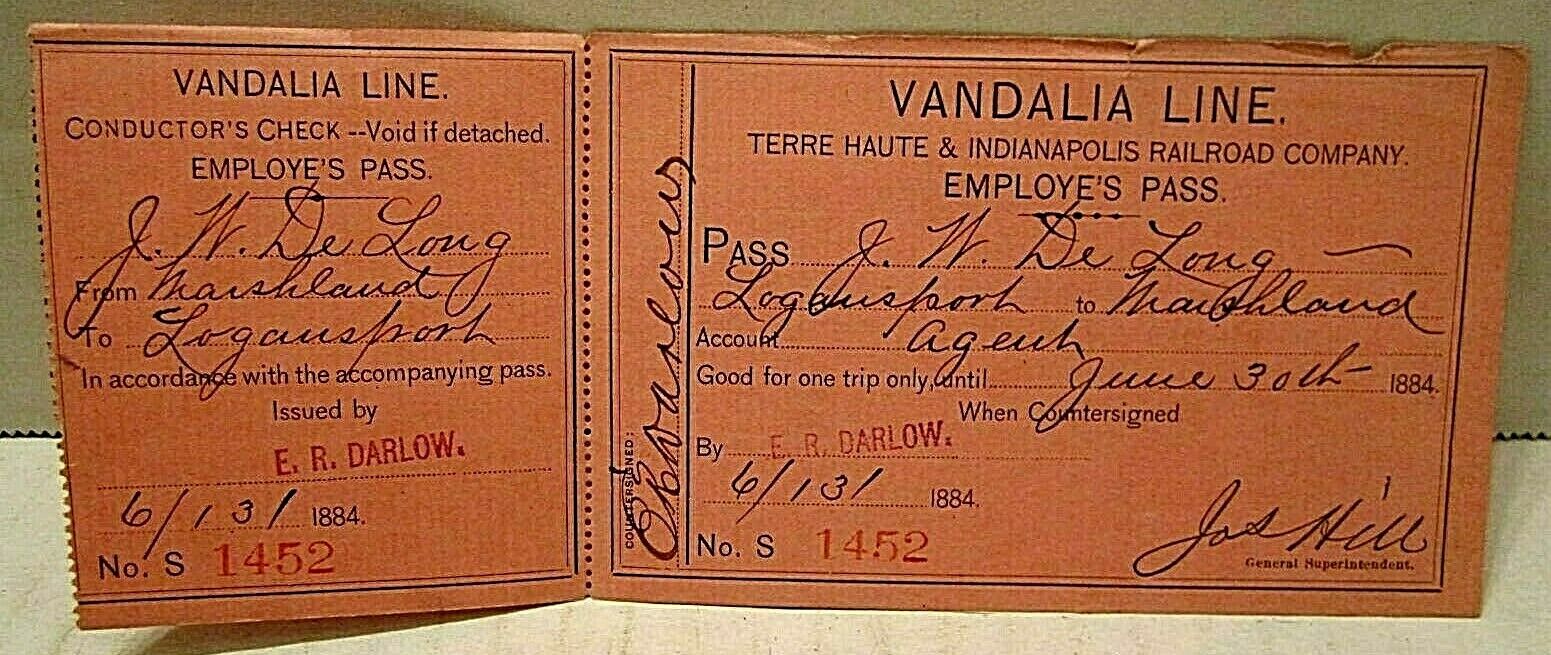 VANDALIA LINE.
CONDUCTOR'S CHECK --Void if detached.
EMPLOYE'S PASS.
J. W. De Long
From Marshland
To Logansport
In accordance with the accompanying pass.
Issued by
E. R. DARLOW.
6/13/ 1884.
No. S 1452
COUNTERSIGNED:
VANDALIA LINE.
TERRE HAUTE & INDIANAPOLIS RAILROAD COMPANY.
EMPLOYE'S PASS.
PASS J. W. De Long
Logansport to Marshland
Account Agent
Good for one trip only, until June 30th 1884.
When Countersigned
By E. R. DARLOW.
6/13/ 1884.
No. S 1452
Jos Hill
General Superintendent.